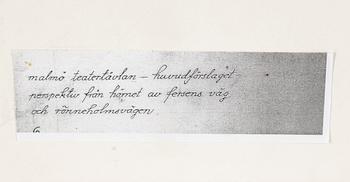 malmö teatertävlan – huvudförslaget
perspektiv från hörnet av fersens väg
och rönneholmsvägen.